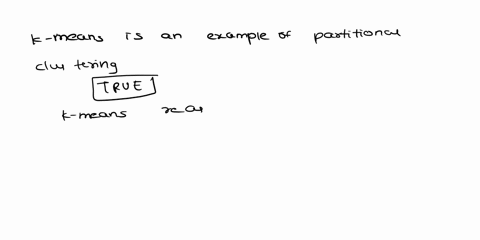 k-means is an example of partitional
clustering
TRUE
k-means